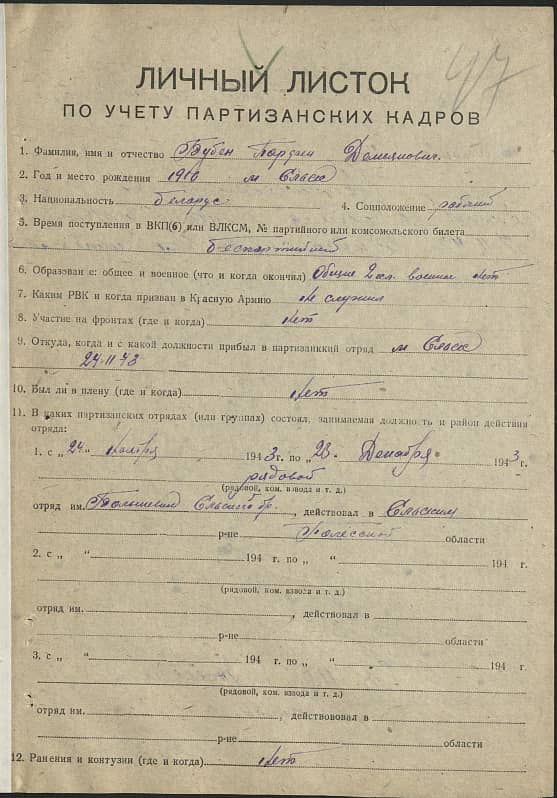 47
ЛИЧНЫЙ ЛИСТОК
ПО УЧЕТУ ПАРТИЗАНСКИХ КАДРОВ
1. Фамилия, имя и отчество Бубен Гордей
2. Год и место рождения 1910 м Ельск
3. Национальность беларус 4. Соцположение рабочий
5. Время поступления в ВКП(б) или ВЛКСМ, № партийного или комсомольского билета
беспартийный
6. Образован е: общее и военное (что и когда окончил) Общие 2 кл. военное нет
7. Каким РВК и когда призван в Красную Армию не служил
8. Участие на фронтах (где и когда) нет
9. Откуда, когда и с какой должности прибыл в партизанккий отряд м Ельск
24.11.43
10. Был ли в плену (где и когда) нет
11. В каких партизанских отрядах (или группах) состоял, занимаемая должность и район действия
отряда:
1. с „24" ноября 1943 г. по „23. Декабря 1943 г.
рядовой
(рядовой, ком. взвода и т. д.)
отряд им. Большевик Ельской бр., действовал в Ельским
р-не Полесской области
2. с „ " 194 г. по „ " 194 г.
(рядовой, ком. взвода и т. д.)
отряд им. , действовал в
р-не области
3. с „ " 194 г. по „ " 194 г.
(рядовой, ком. взвода и т. д.)
отряд им. , действововал в
р-не области
12. Ранения и контузии (где и когда) нет